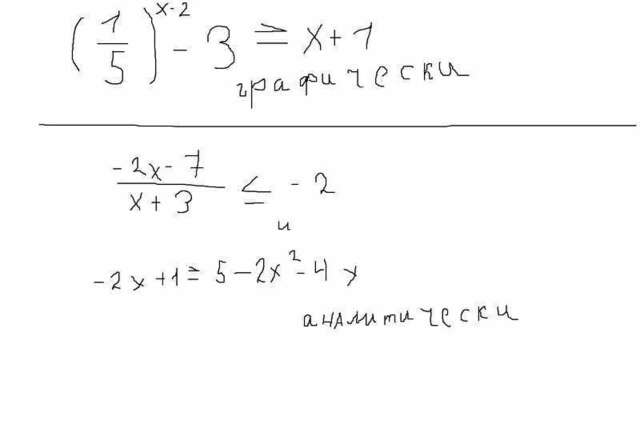 (1/5)^(x-2) - 3 = x + 1
графически
(-2x - 7)/(x + 3) ≤ -2
и
-2x + 1 = 5 - 2x² - 4x
аналитически